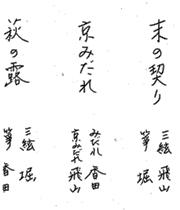 末の契り
三絃 飛山
箏 堀
京みだれ
みだれ 香田
京みだれ 飛山
萩の露
三絃 堀
箏 香田